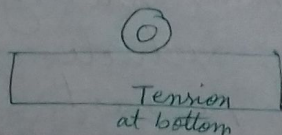 Tension
at bottom